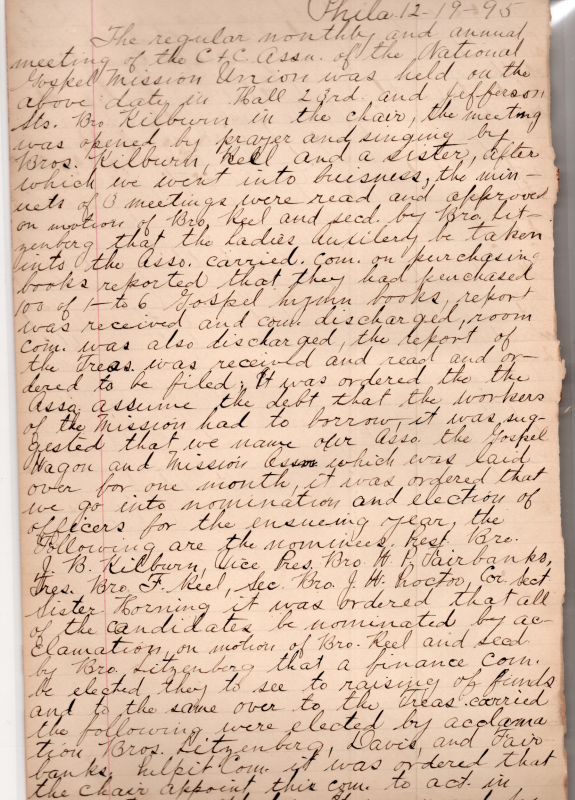 Phila 12-19-95
The regular monthly and annual
meeting of the C & C. Assn. of the National
Gospel Mission Union was held on the
above date, in Hall 23rd and Jefferson
Sts. Bro Kilburn in the chair, the meeting
was opened by prayer and singing by
Bros. Kilburn, Keel and a sister, after
which we went into buisness, the min-
uets of 3 meetings were read, and approved
on motion of Bro. Keel and secd. by Bro. Lit-
zenberg that the Ladies Auxilery be taken
into the Asso. carried. com. on purchasing
books reported that they had purchased
100 of 1- to 6 Gospel hymn books, report
was received and com. discharged, room
com. was also discharged, the report of
the Treas. was received and read and or-
dered to be filed. It was ordered the the
Asso. assume the debt that the workers
of the Mission had to borrow, it was sug-
gested that we name our Asso. the Gospel
Wagon and Mission Assn which was laid
over for one month, it was ordered that
we go into nomination and election of
officers for the ensueing year, the
Following are the nominees. Pest. Bro.
J. B. Kilburn, Vice Pres. Bro. H. P. Fairbanks,
Tres. Bro. F. Keel, Sec. Bro. J. H. Cor. sect
Sister Horning it was ordered that all
of the candidates be nominated by ac-
clamation, on motion of Bro. Keel and secd
by Bro. Litzenberg that a finance com.
be elected they to see to raising of funds
and to the same over to the Treas. carried
the following were elected by acclama
tion Bros. Litzenberg, Davis, and Fair
banks. Pulpit Com. it was ordered that
the chair appoint this com. to act in